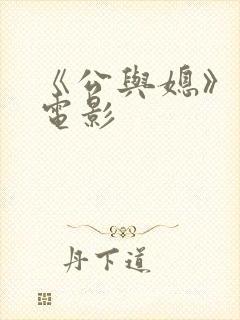 《公與媳》
電影
丹下道